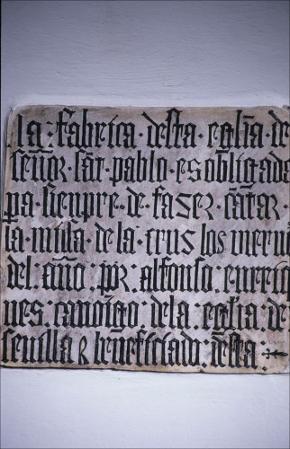 la: fabrica · desta · eglia de
señor · sãt · pablo · es obligada
pa · sienpre · de · faser · cãtar ·
la · missa · de la · crus los viernes
del · año · por · alfonso · enrriq
ues: canonigo · de la · eglia: de
seuilla ⁊ beneficiado: desta: